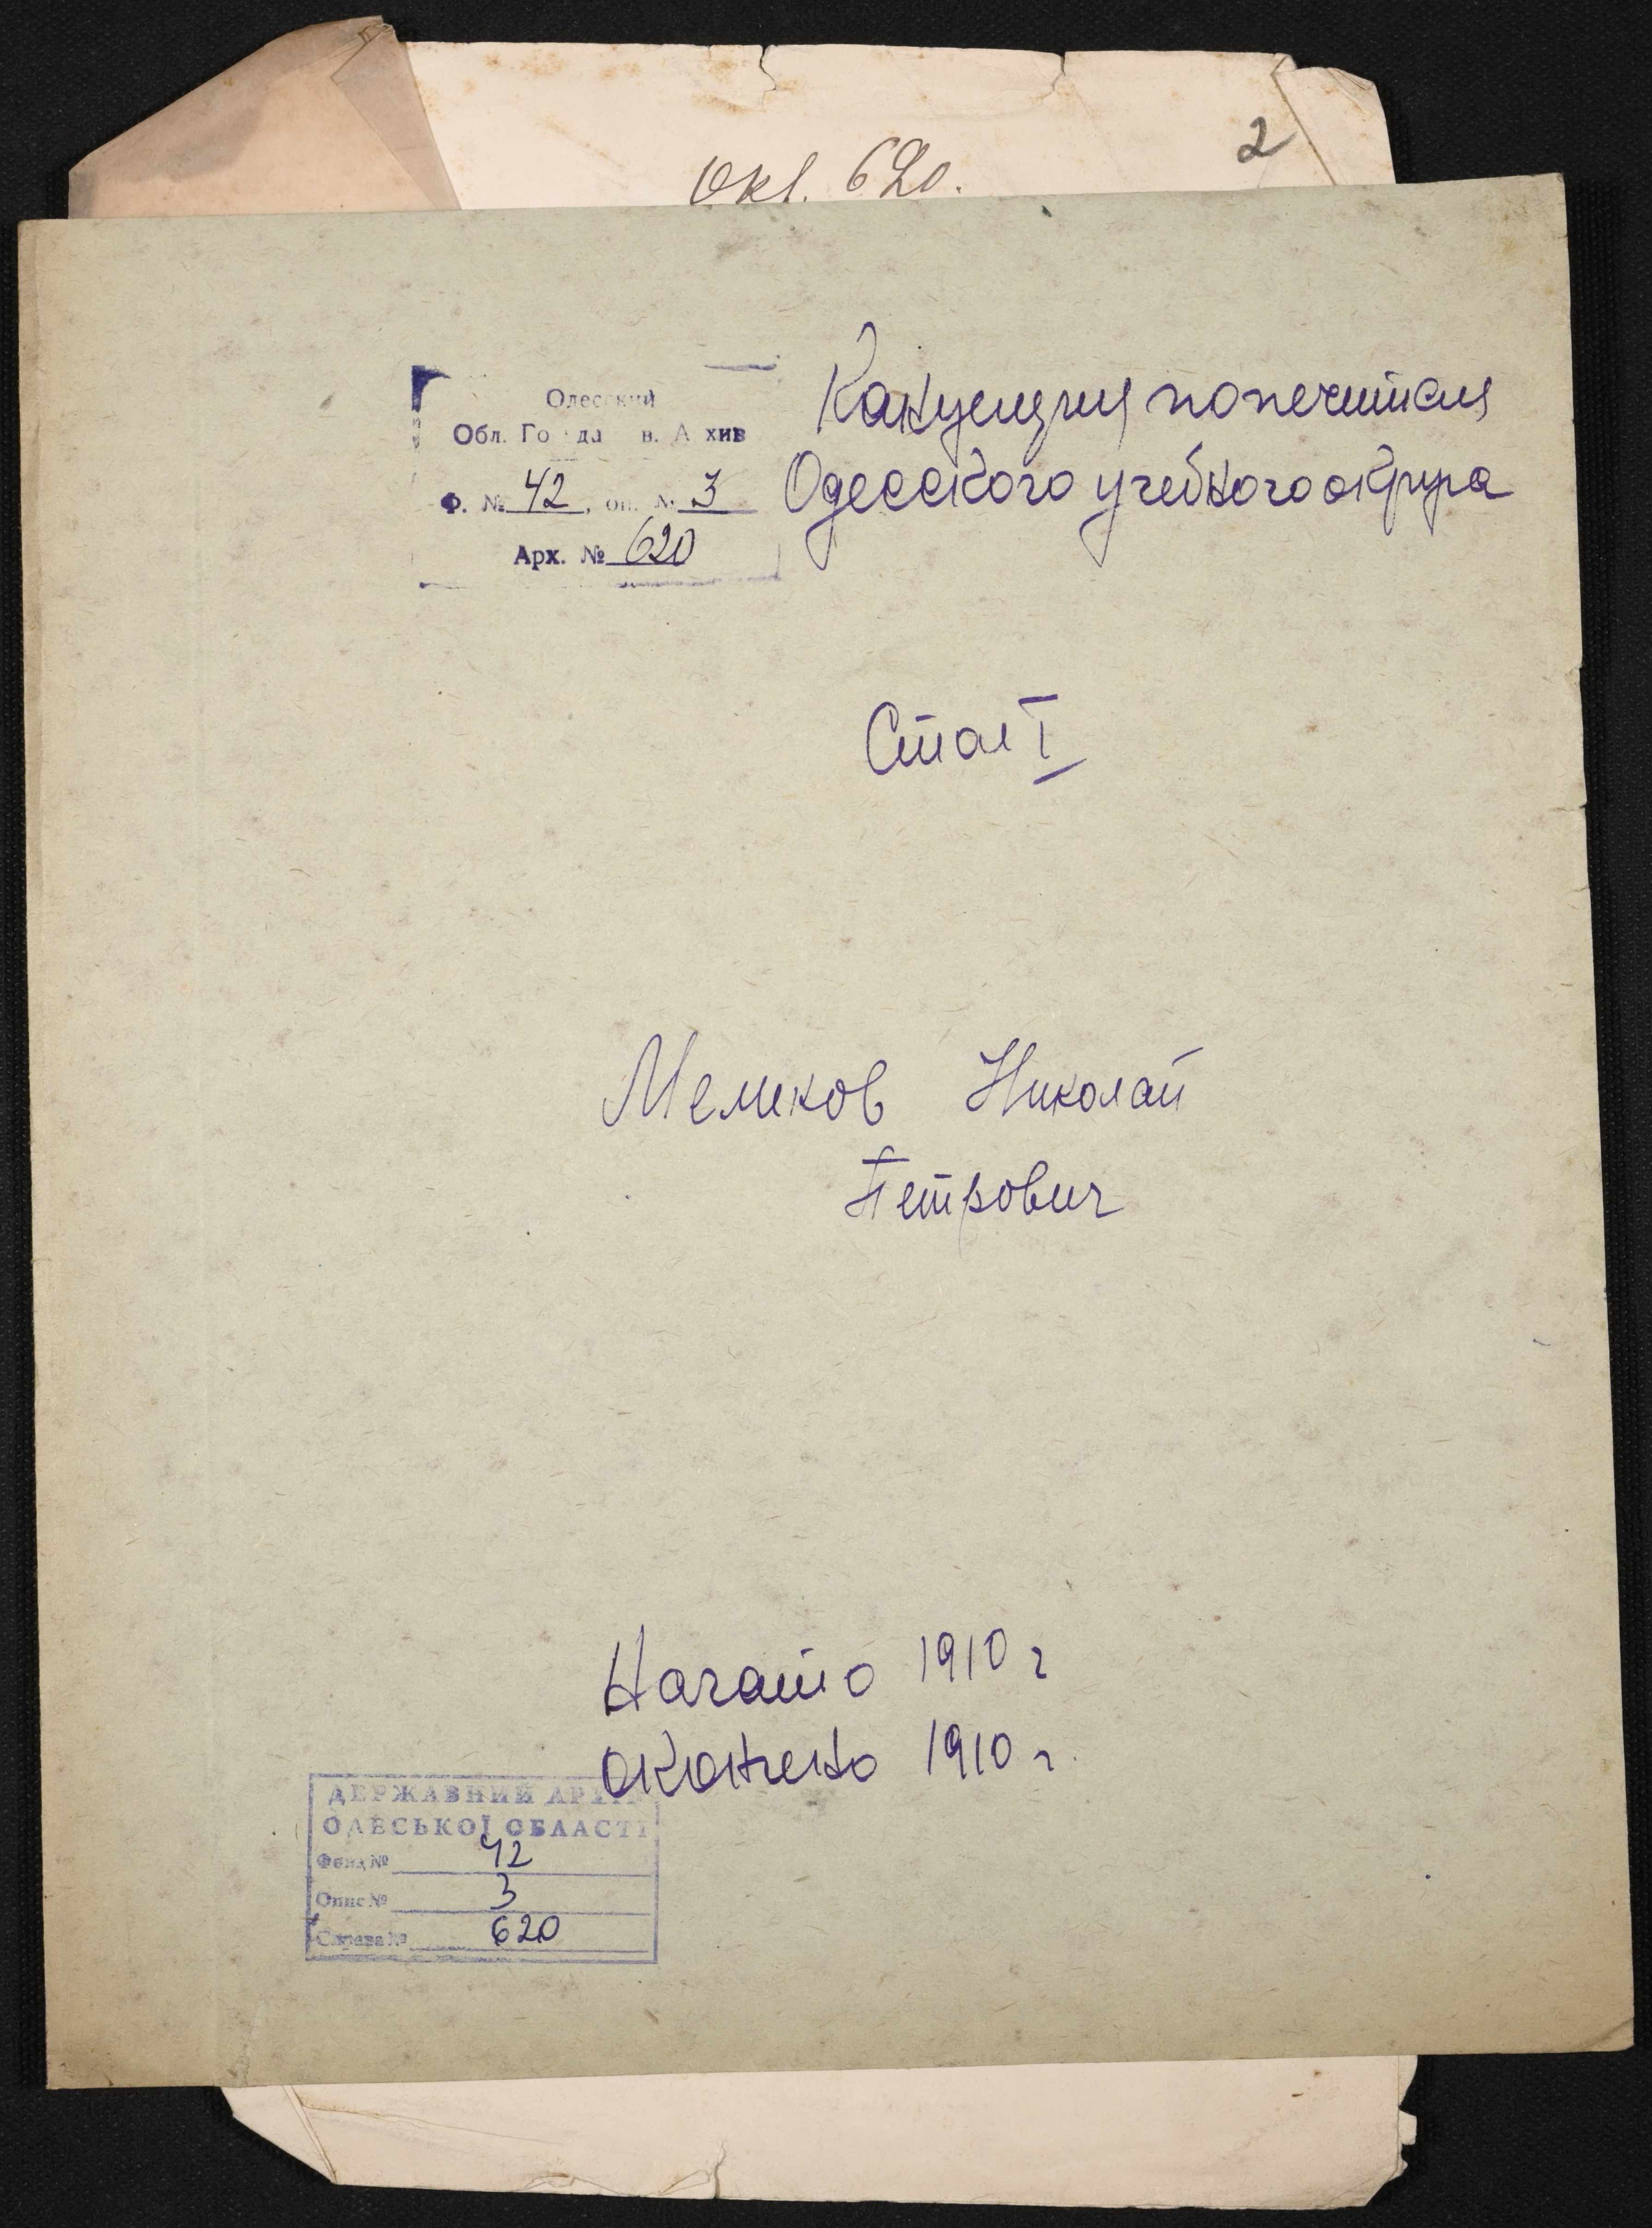 окл. 620.
2
Одесский
Обл. Го да в. А хив
Ф. № 42, оп. № 3
Арх. № 620
Канцелярия попечителя
Одесского учебного округа
Стол I
Меликов Николай
Петрович
Начато 1910 г
окончено 1910 г.
ДЕРЖАВНИЙ АРХІВ
ОДЕСЬКОЇ ОБЛАСТІ
Фонд № 42
Опис № 3
Справа № 620